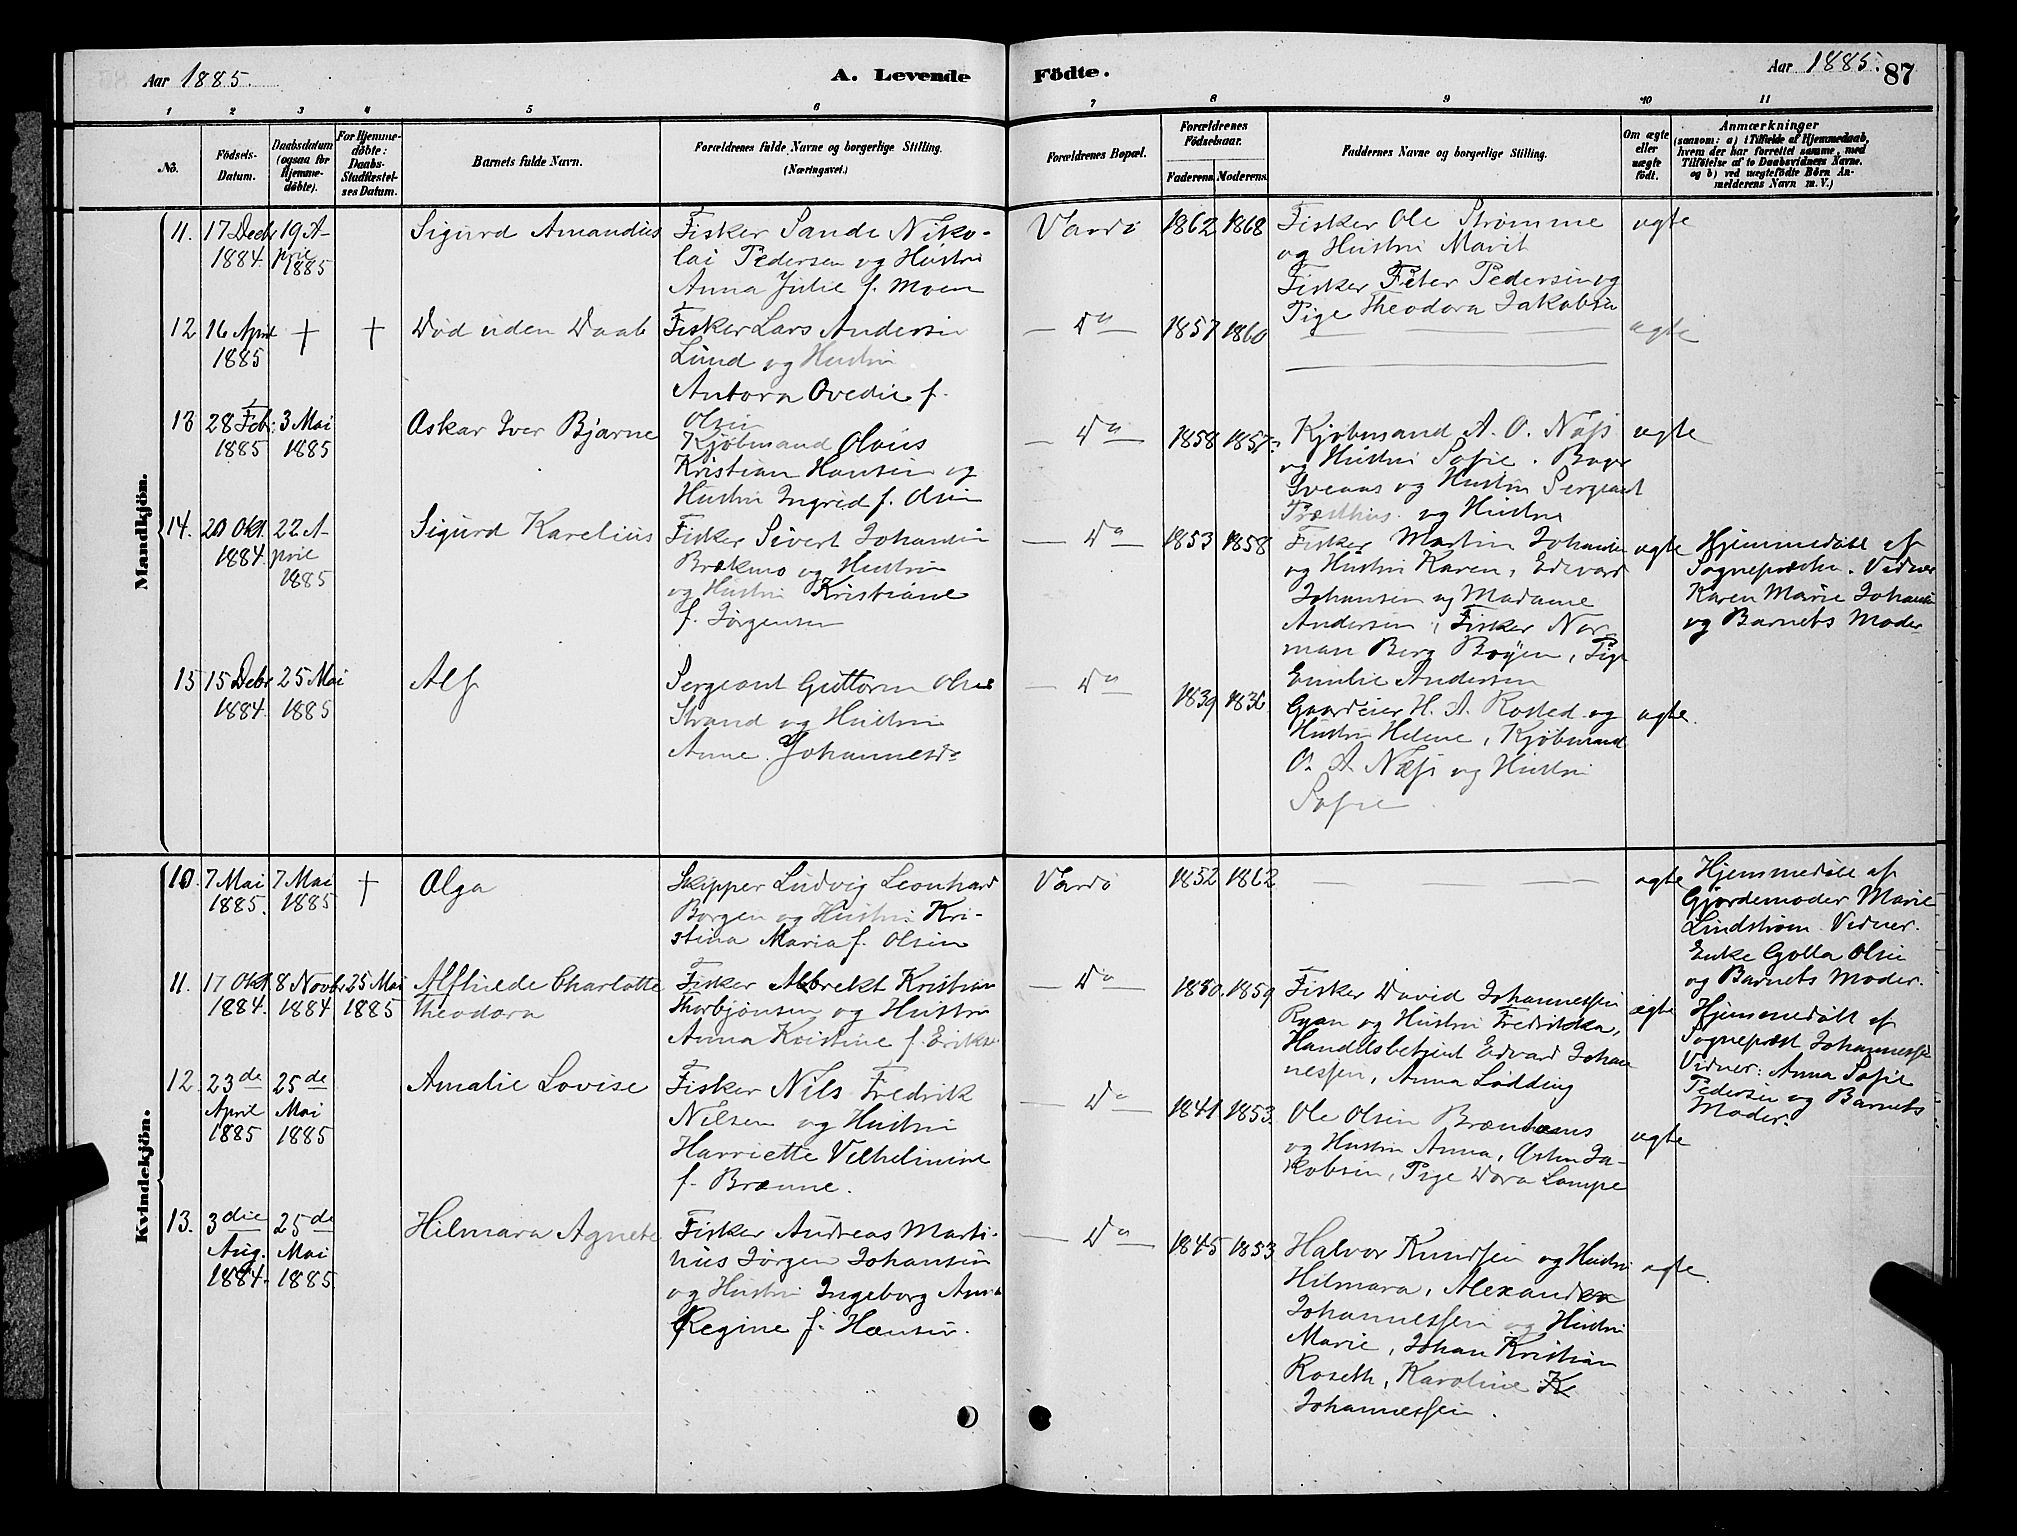 Aar 1885.
A. Levende Födte.
Aar 1885. 87
1 2 3 4 5 6 7 8 9 10 11
No.
Födsels-Datum.
Daabsdatum (ogsaa for Hjemme-döbte).
For Hjemme-döbte: Daabs-Stadfæstel-ses Datum.
Barnets fulde Navn.
Forældrenes fulde Navne og borgerlige Stilling.
(Næringsvei.)
Forældrenes Bopæl.
Forældrenes Födselsaar.
Faderens. Moderens.
Faddernes Navne og borgerlige Stilling.
Om ægte eller uægte födt.
Anmærkninger
(saasom: a) i Tilfælde af Hjemmedaab, hvem der har forrettet samme, med Tilföielse af to Daabsvidners Navne. og b) ved uægtefödte Börn An-melderens Navn m. V.)
Mandkjön.
11. 17 Decbr 1884. 19 A-pril 1885
Sigurd Amandus
Fisker Sande Niko-
lai Pedersen og Hustru
Anna Julie f. Moen
Vardö 1862 1868
Fisker Ole Strømme
og Hustru Marit
Fisker Peter Pedersen og
Pige Theodora Jakobsen
ægte
12 16 April 1885 † †
Död uden Daab
Fisker Lars Andersen
Lund og Hustru
Antora Ovedie f.
Olsen
— Do — 1857 1860
ægte
13 28 Feb: 1885 3 Mai 1885
Askar Iver Bjarne
Kjöbmand Olaus
Kristian Hansen og
Hustru Ingrid f. Olsen
— Do — 1858 1857
Kjöbmand A. O. Næss
og Hustru Sofie. Bager
Sveaas og Hustru Sergeant
Præsthus og Hustru
ægte
14. 20 Okt. 1884. 22 A-pril 1885
Sigurd Karelius
Fisker Sivert Johansen
Brækmo og Hustru
og Hustru Kristiane
f. Jørgensen
— Do — 1853 1858
Fisker Martin Johansen
og Hustru Karen, Edvard
Johansen og Madame
Andersen, Fisker Nor-
man Berg Bøyen, Pige
Emilie Andersen
ægte
Hjemmedöbt af
Sognepræsten. Vidner
Karen Marie Johansen
og Barnets Moder
15 15 Debr 1884. 25 Mai 1885
Alf
Sergeant Guttorm Olsen
Strand og Hustru
Anne Johannesdr
— Do — 1839 1836
Gaardeier H. A. Rosted og
Hustru Helene, Kjöbmand
O. A. Næss og Hustru
Sofie
ægte.
Kvindekjön.
10. 7 Mai 1885. 7 Mai 1885 †
Olga
Skipper Ludvig Leonhard
Borgen og Hustru Kri-
stina Maria f. Olsen
Vardö 1852 1862
— — — —
ægte
Hjemmedöbt af
Gjordemoder Marie
Lindstrøm. Vidner.
Enke Golla Olsen
og Barnets Moder.
11. 17 Okt. 1884. 8 Novbr 1884 25 Mai 1885
Alfhilde Charlotte
Theodora
Fisker Albrekt Kristian
Thorbjönsen og Hustru
Anna Kristine f. Eriksen
— Do — 1850. 1859
Fisker David Johannessen
Ryan og Hustru Fredrikka,
Handelsbetjent Edvard Johan
nessen, Anna Lödding
ægte
Hjemmedöbt af
Sognepræst Johannessen
Vidner: Anna Sofie
Pedersen og Barnets
Moder.
12. 23de April 1885 25de Mai 1885
Amalie Lovise
Fisker Nils Fredrik
Nilsen og Hustru
Harriette Vilhelmine
f. Brænne.
— Do — 1841 1853.
Ole Olsen
og Hustru Anna, Ja-
kobsen, Pige Dora Lampe
ægte
13. 3die Aug. 1884. 25de Mai 1885
Hilmara Agnete
Fisker Andreas Marti-
nus Jörgen Johansen
og Hustru Ingeborg Anna
Regine f. Hansen.
— Do — 1845 1853
Halvor Knudsen og Hustru
Hilmara, Alexander
Johannessen og Hustru
Marie, Johan Kristian
Roseth, Karoline K
Johannessen.
ægte.